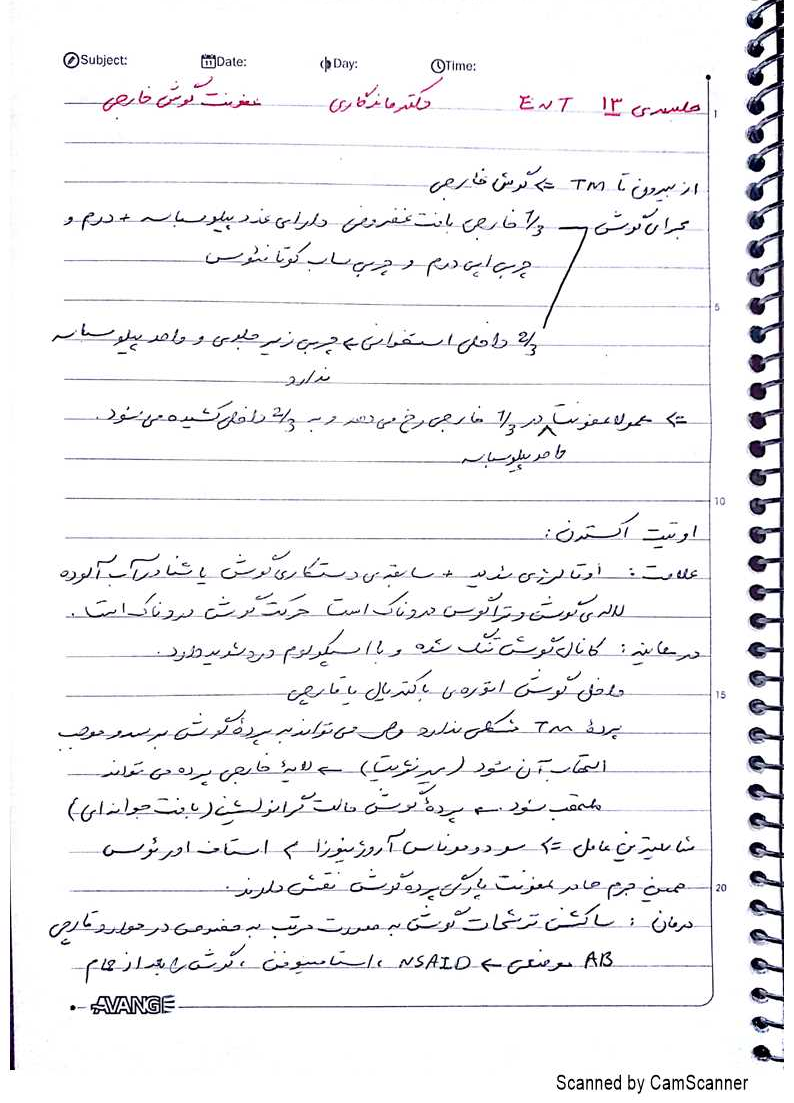 Subject: Date: Day: Time:
جلسه‌ی ۱۳ ENT دکتر ماندگاری عفونت گوش خارجی
1
از بیرون تا TM => گوش خارجی
مجرای گوش 1/3 خارجی بافت غضروفی دارای غدد پیلوسباسه + درم و
چربی اپی درم و چربی ساب کوتانئوس
5
2/3 داخلی استخوانی → چربی زیر جلدی و واحد پیلوسباسه
ندارد
=> معمولا عفونت در 1/3 خارجی رخ می‌دهد و به 2/3 داخلی کشیده می‌شود.
واحد پیلوسباسه
10
اوتیت اکسترن:
علامت: اوتالرژی شدید + سابقه‌ی دستکاری گوش یا شنا در آب آلوده
لاله‌ی گوش و تراگوس دردناک است حرکت گوش دردناک است.
در معاینه: کانال گوش تنگ شده و با اسپکولوم درد شدید دارد.
15
داخل گوش اتوره‌ی باکتریال یا قارچی
پردهٔ TM مشکلی ندارد ولی می‌تواند به پردهٔ گوش برسد و موجب
التهاب آن شود (میرنژیت) → لایهٔ خارجی پرده می تواند
ملتهب شود → پردهٔ گوش حالت گرانولیشن (بافت جوانه‌ای)
شایعترین عامل => سودوموناس آروژینوزا > استاف اورئوس
20
همین جرم ها در عفونت پارگی پرده گوش نقش دارند.
درمان: ساکشن ترشحات گوش به صورت مرتب به خصوص در موارد قارچی
AB موضعی → NSAID ، استامینوفن ، گوش را بعد از حمام
AVANGE
Scanned by CamScanner